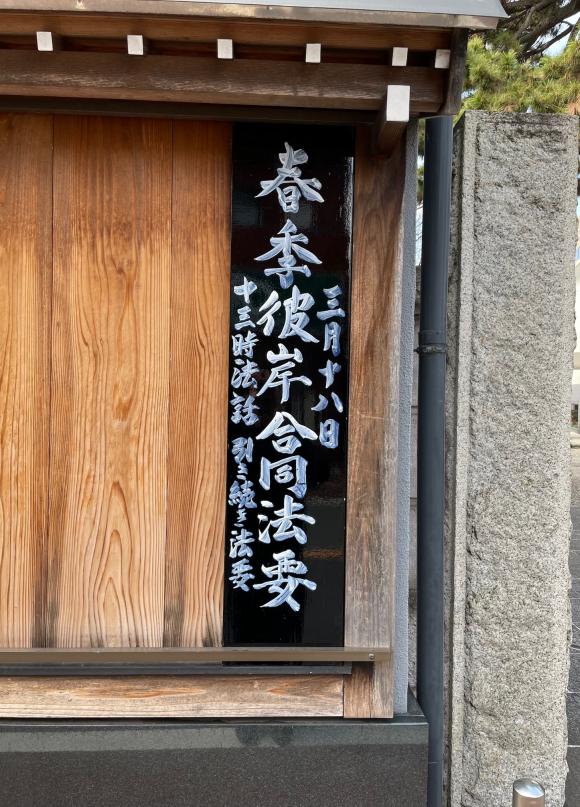 三月十八日
春季彼岸合同法要
十三時法話 引き続き法要